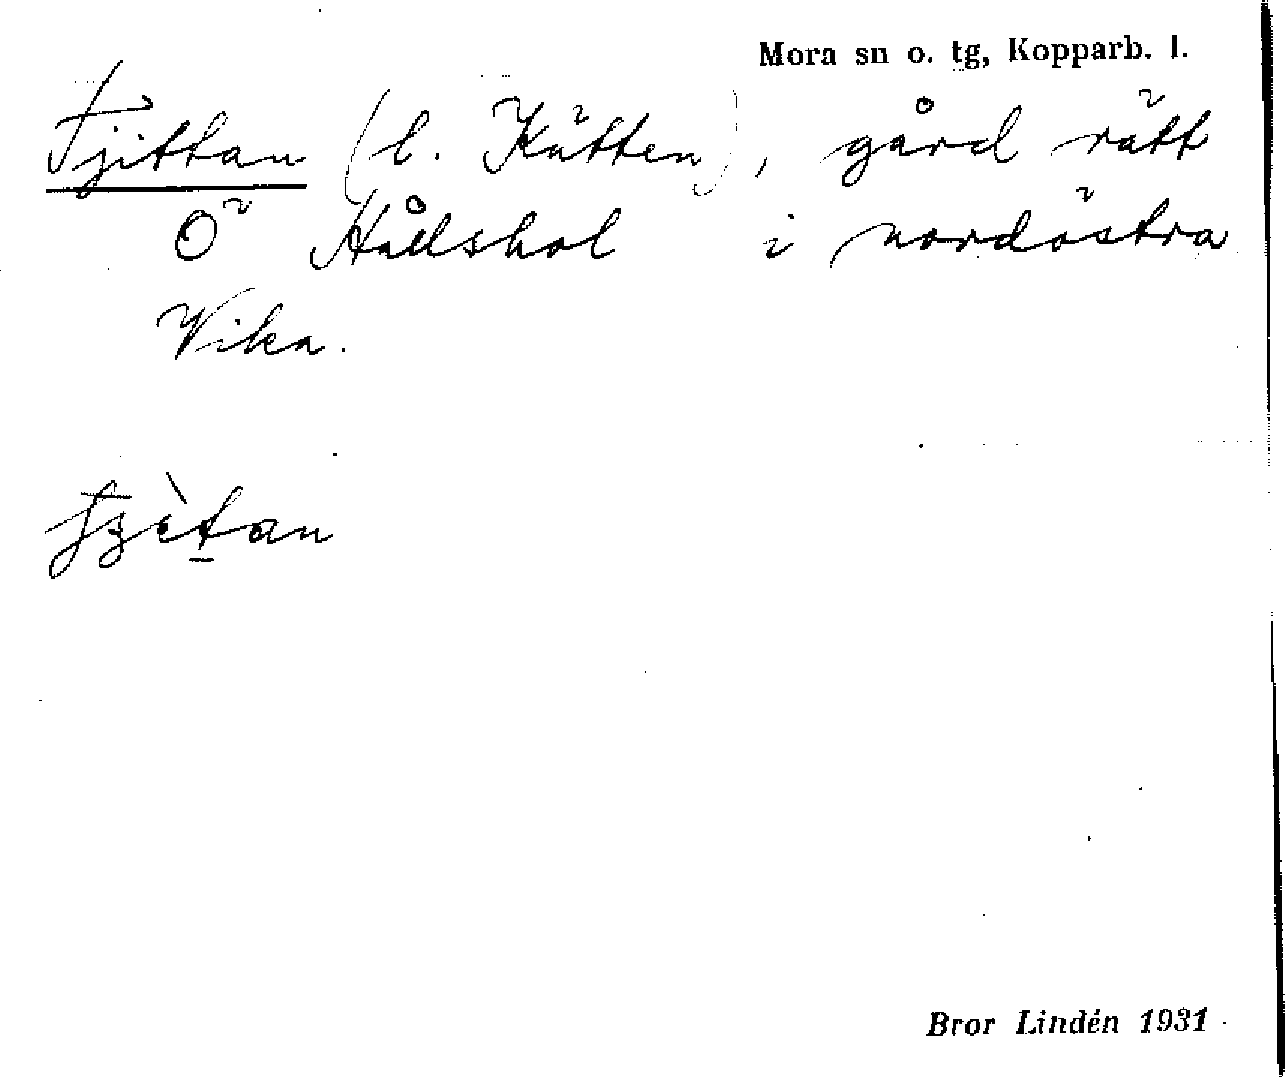 Mora sn o. tg, Kopparb. l.
Tjittan (l. Kätten), gård rätt
Ö Hållshol i nordöstra
Vika.
Bror Lindén 1931